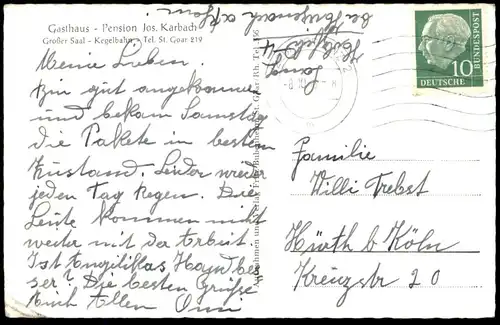 Gasthaus - Pension Jos. Karbach
Großer Saal - Kegelbahn - Tel. St. Goar 219
Meine Lieben.
Bin gut angekommen
und bekam Samstag
die Pakete in besten
Zustand. Leider wieder
jeden Tag Regen. Die
Leute kommen nicht
weiter mit der Arbeit.
Ist Angelikas Hand bes
ser? Die besten Grüße
Euch Allen Omi
DEUTSCHE
BUNDESPOST
10
Familie
Willi Trebst
Hürth b Köln
Kreuzstr 20